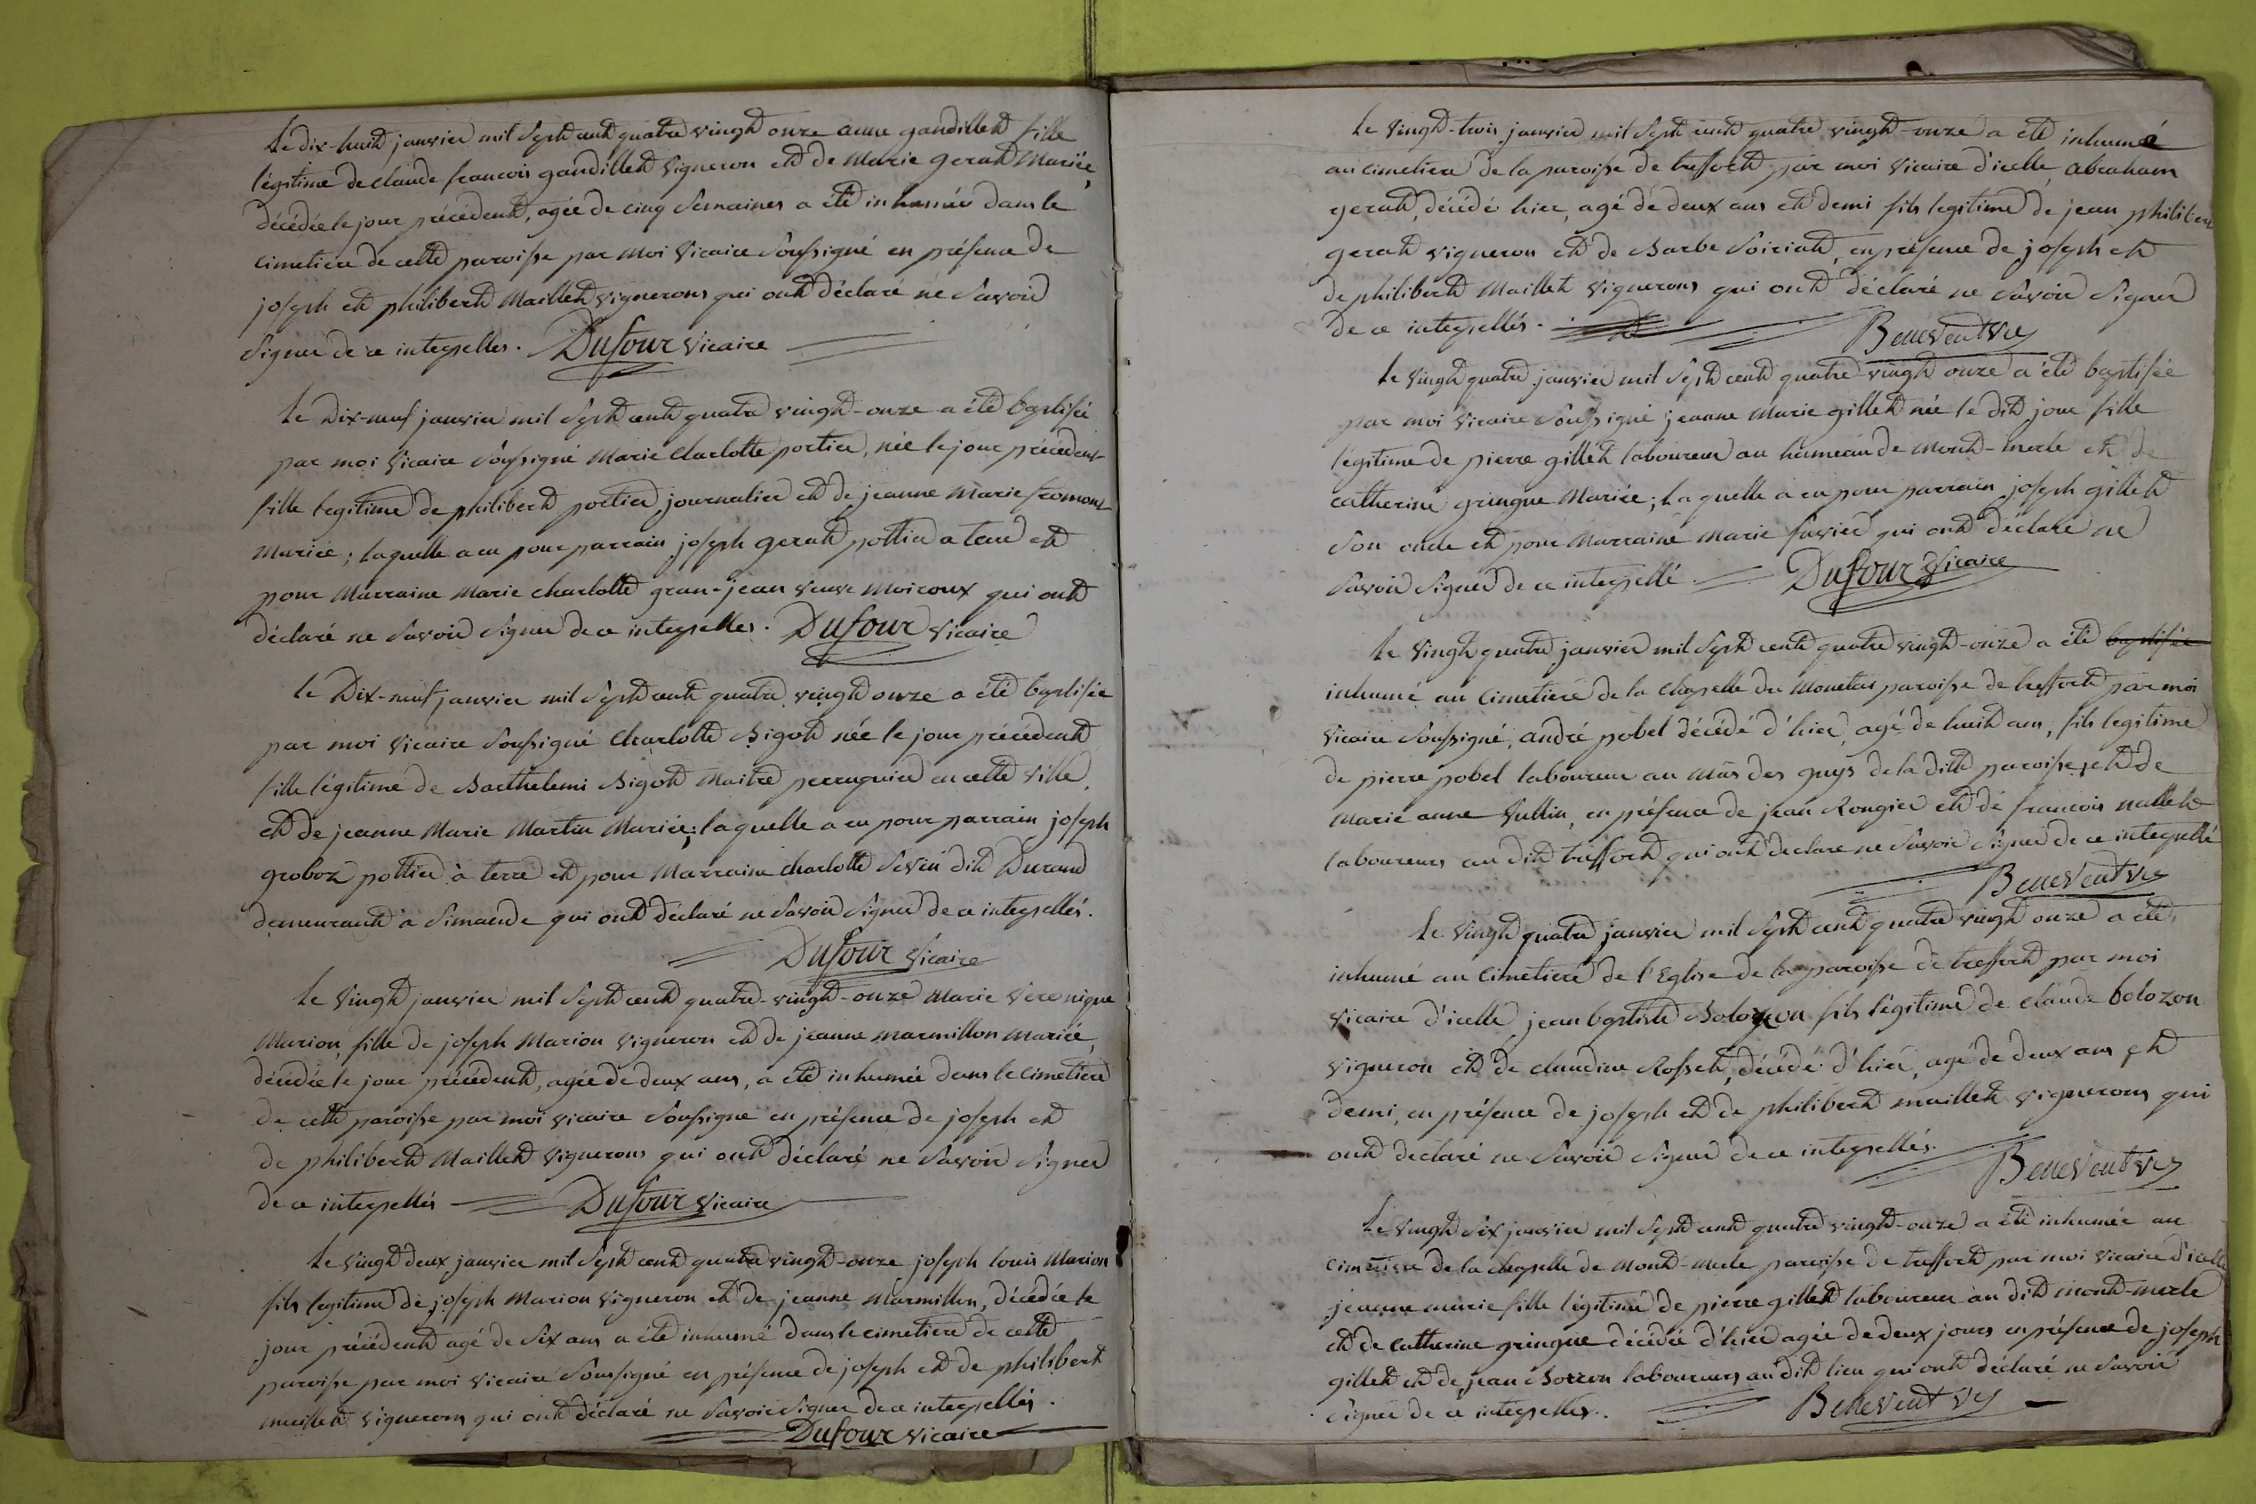 Le dix-huit janvier mil sept cent quatre vingt onze anne gandillet fille
légitime de claude francois gandillet vigneron et de Marie gerat Mariée,
décédée le jour précédent, agée de cinq semaines a été inhumée dans le
cimetière de cette paroisse par moi vicaire soussigné en présence de
joseph et philibert Maillet vignerons qui ont déclaré ne savoir
signer de ce interpelles. Dufour vicaire
Le Dix-neuf janvier mil sept cent quatre vingt-onze a été baptisée
par moi vicaire soussigné Marie charlotte portier, née le jour précédent
fille legitime de philibert portier journalier et de jeanne Marie fromont
Mariée; laquelle a eu pour parrain joseph gerat pottier a terre et
pour Marraine Marie charlotte gran-jean veuve Moiroux qui ont
déclaré ne savoir signer de ce interpelles. Dufour vicaire
Le Dix-neuf janvier mil sept cent quatre vingt onze a été baptisée
par moi vicaire soussigné charlotte Bigot née le jour précédent
fille légitime de Barthelemi Bigot Maitre perruquier en cette ville,
et de jeanne Marie Martin Mariée; laquelle a eu pour parrain joseph
groboz pottier à terre et pour Marraine charlotte dit Durand
demeurant a simandre qui ont déclaré ne savoir signer de ce interpellés.
Dufour vicaire
Le vingt janvier mil sept cent quatre-vingt-onze Marie veronique
Marion, fille de joseph Marion vigneron et de jeanne marmillon mariée,
décédée le jour précédent, agée de deux ans, a été inhumée dans le cimetiere
de cette paroisse par moi vicaire soussigné en présence de joseph et
de philibert Maillet vignerons qui ont déclaré ne savoir signer
de ce interpellés Dufour vicaire
Le vingt deux janvier mil sept cent quatre vingt-onze joseph louis Marion
fils legitime de joseph Marion vigneron et de jeanne Marmillon, décédée le
jour précédent agé de six ans a été inhumé dans le cimetiere de cette
paroisse par moi vicaire soussigné en présence de joseph et de philibert
maillet vignerons qui ont déclaré ne savoir signer de ce interpellés.
Dufour vicaire
Le vingt-trois janvier mil sept cent quatre vingt-onze a été inhumé
au cimetiere de la paroisse de treffort par moi vicaire d'icelle, abraham
gerat, décédé hier, agé de deux ans et demi fils legitime de jean philibert
gerat vigneron et de Barbe Soiriat, en présence de joseph et
de philibert Maillet vignerons qui ont déclaré ne savoir signer
de ce interpellés. Benevent vic
Le vingt quatre janvier mil sept cent quatre-vingt onze a été baptisée
par moi vicaire soussigné jeanne Marie gillet née le dit jour fille
légitime de pierre gillet laboureur au hameau de Mont-merle et de
catherine gringue Mariée; la quelle a eu pour parrain joseph gillet
son oncle et pour Marraine Marie favier qui ont déclaré ne
savoir signer de ce interpellé. Dufour vicaire
Le vingt quatre janvier mil sept cent quatre vingt-onze a été baptisée
inhumé au cimetiere de la chapelle du Monetay paroisse de treffort par moi
vicaire soussigné, andré pobel décédé d'hier, agé de huit ans, fils legitime
de pierre pobel laboureur au Mas des guys de la dite paroisse, et de
Marie anne Vullin, en présence de jean Rongier et de francois mallet
laboureurs au dit treffort qui ont déclaré ne savoir signer de ce interpellé
Benevent vic
Le vingt quatre janvier mil sept cent quatre vingt onze a été
inhumé au cimetiere de l'Eglise de la paroisse de treffort par moi
vicaire d'icelle jean baptiste Bolozon fils légitime de claude bolozon
vigneron et de claudine Rosset, décédé d'hier, agé de deux ans et
demi, en présence de joseph et de philibert maillet vignerons qui
ont declaré ne savoir signer de ce interpellés.
Benevent vic
Le vingt six janvier mil sept cent quatre vingt-onze a été inhumée au
cimetiere de la chapelle de Mont-Merle paroisse de treffort par moi vicaire d'icelle
jeanne marie fille légitime de pierre gillet laboureur au dit mont-merle
et de catherine gringue décédée d'hier agée de deux jours en présence de joseph
gillet et de jean Borron laboureurs au dit lieu qui ont déclaré ne savoir
signer de ce interpelles. Benevent vic